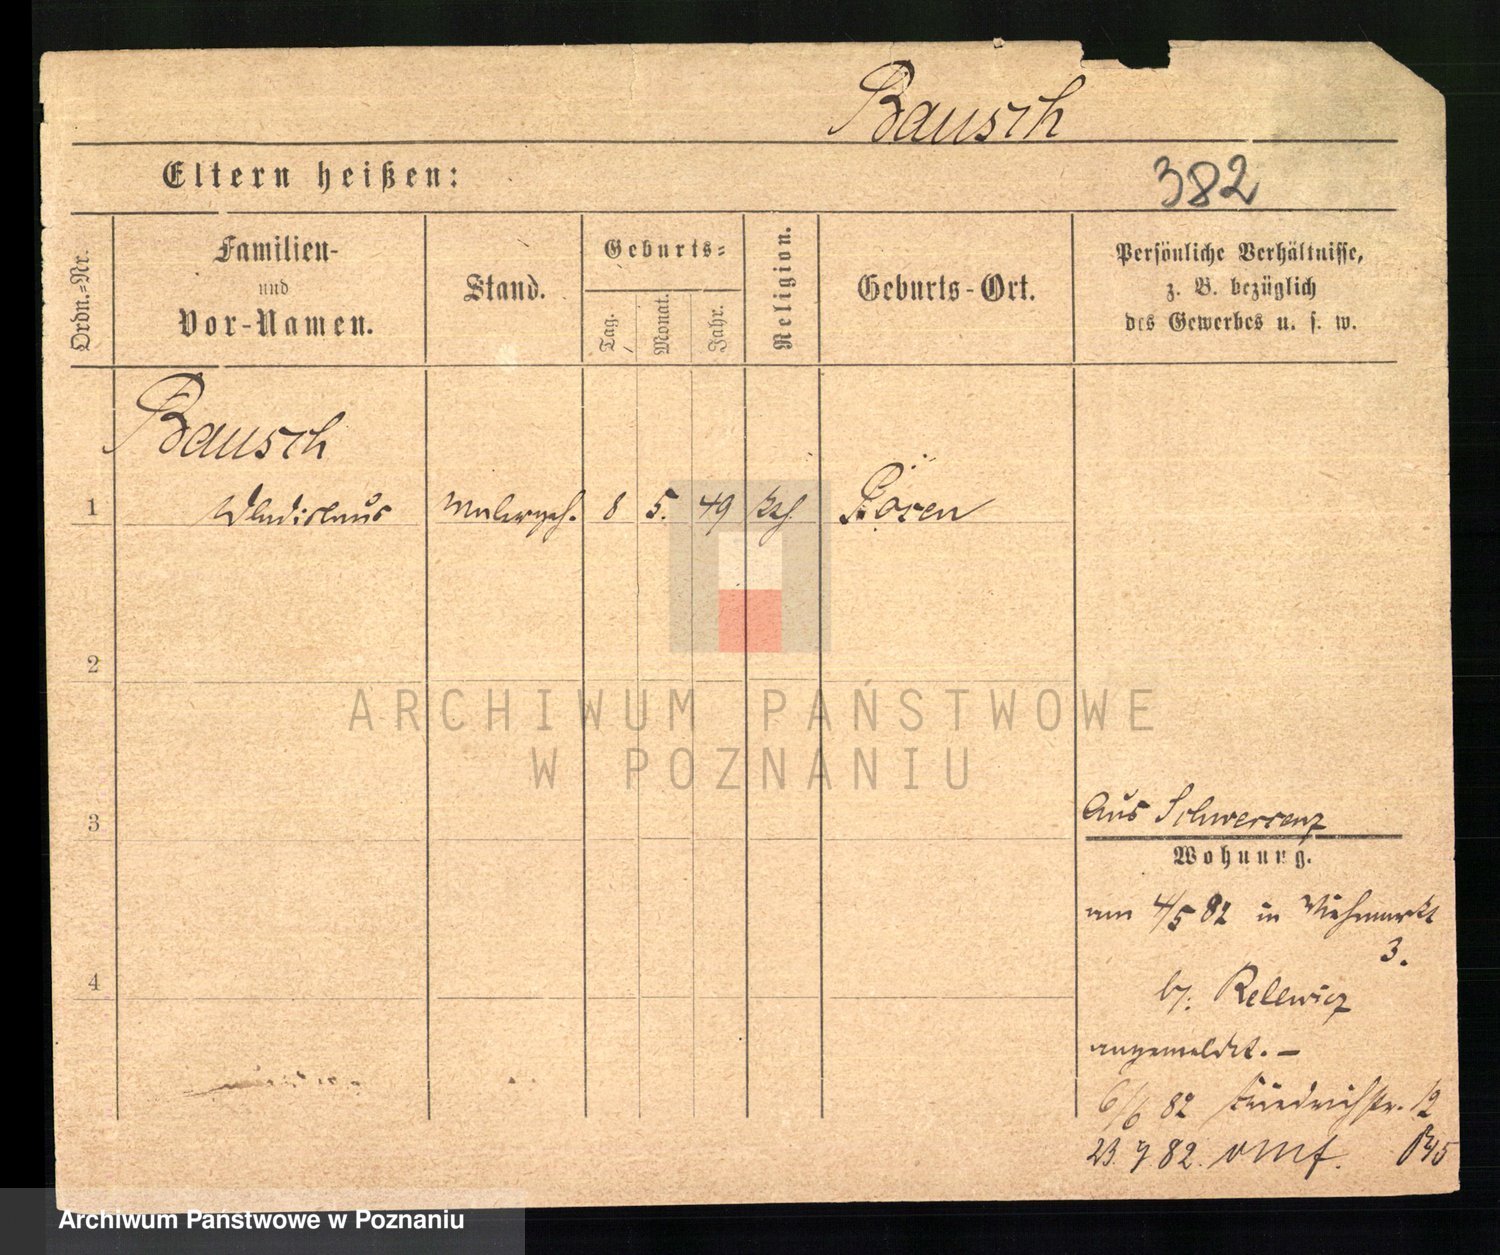 Bausch
Eltern heißen:
382
Ordn.-Nr.
Familien-
und
Vor-Namen.
Stand.
Geburts-
Tag.
Monat.
Jahr.
Religion.
Geburts-Ort.
Persönliche Verhältnisse,
z. B. bezüglich
des Gewerbes u. s. w.
Bausch
1 Wladislaus Malergeh. 8 5. 49 kth Posen
2
ARCHIWUM PAŃSTWOWE
W POZNANIU
3
Aus Schwersenz
Wohnung.
am 4/5 82 in Viehmarkt
3.
4
by.
angemeldet. –
6/6 82 Friedrichstr. 12
23. 9 82.
Archiwum Państwowe w Poznaniu